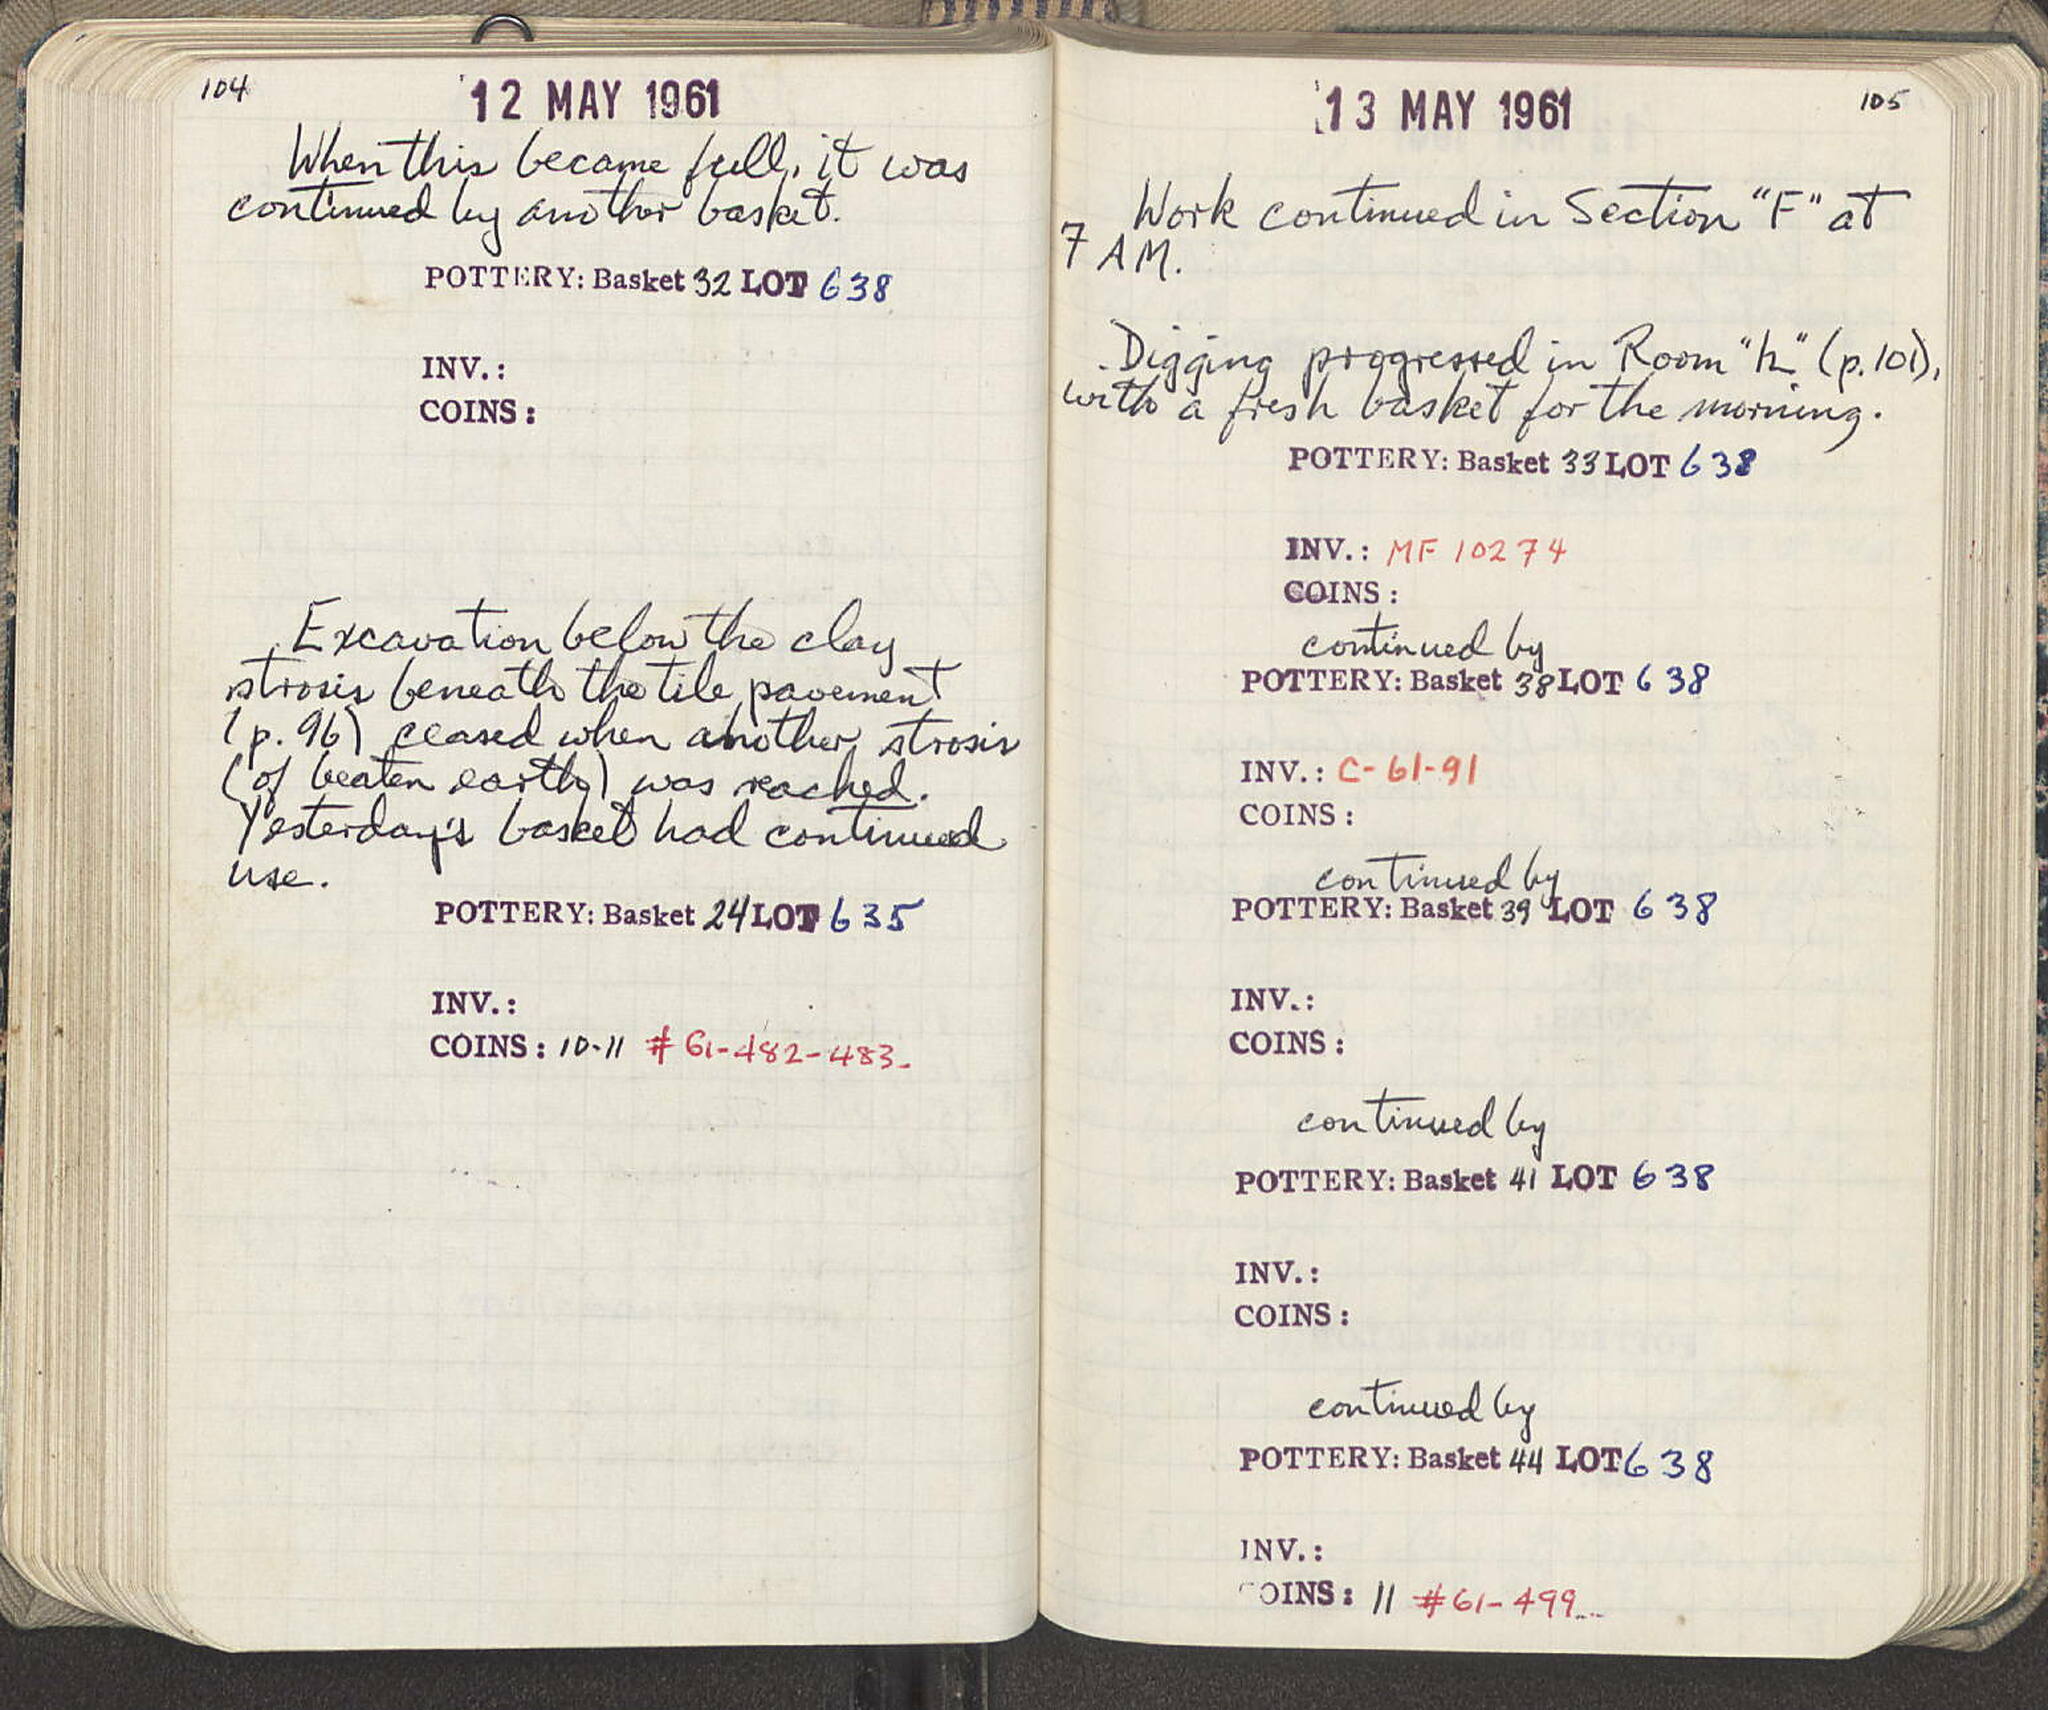 104
12 MAY 1961
When this became full, it was
continued by another basket.
POTTERY: Basket 32 LOT 638
INV.:
COINS:
Excavation below the clay
strosis beneath the tile pavement
(p. 96) ceased when another strosis
(of beaten earth) was reached.
Yesterday's basket had continued
use.
POTTERY: Basket 24 LOT 635
INV.:
COINS: 10-11 # 61-482-483.
105
13 MAY 1961
Work continued in Section "F" at
7 AM.
Digging progressed in Room "h" (p. 101),
with a fresh basket for the morning.
POTTERY: Basket 33 LOT 638
INV.: MF 10274
COINS:
continued by
POTTERY: Basket 38 LOT 638
INV.: C-61-91
COINS:
continued by
POTTERY: Basket 39 LOT 638
INV.:
COINS:
continued by
POTTERY: Basket 41 LOT 638
INV.:
COINS:
continued by
POTTERY: Basket 44 LOT 638
INV.:
COINS: 11 # 61-499